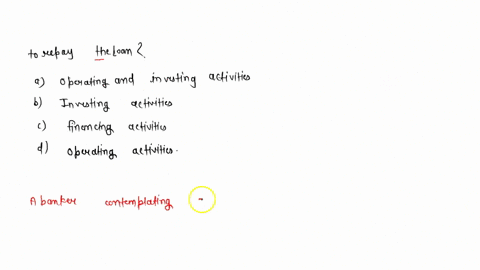 to repay the loan?
a) Operating and investing activities
b) Investing activities
c) financing activities
d) operating activities.
A banker contemplating